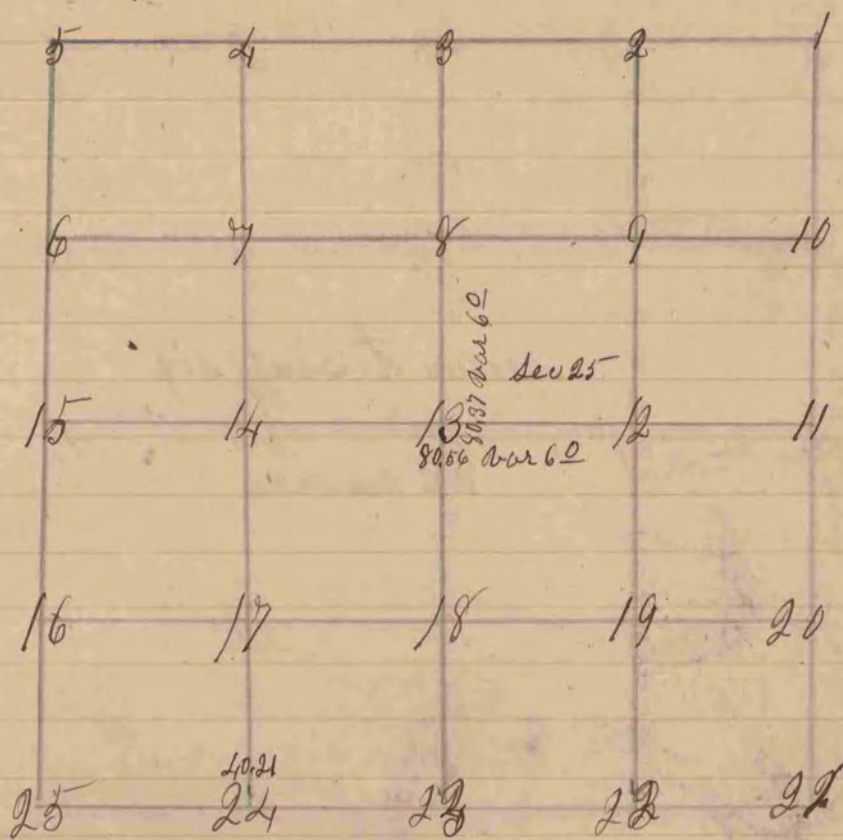 5 4 3 2 1
6 7 8 9 10
80,37 var 6º
Sec 25
15 14 13 12 11
80,56 var 6º
16 17 18 19 20
40,21
25 24 23 22 21